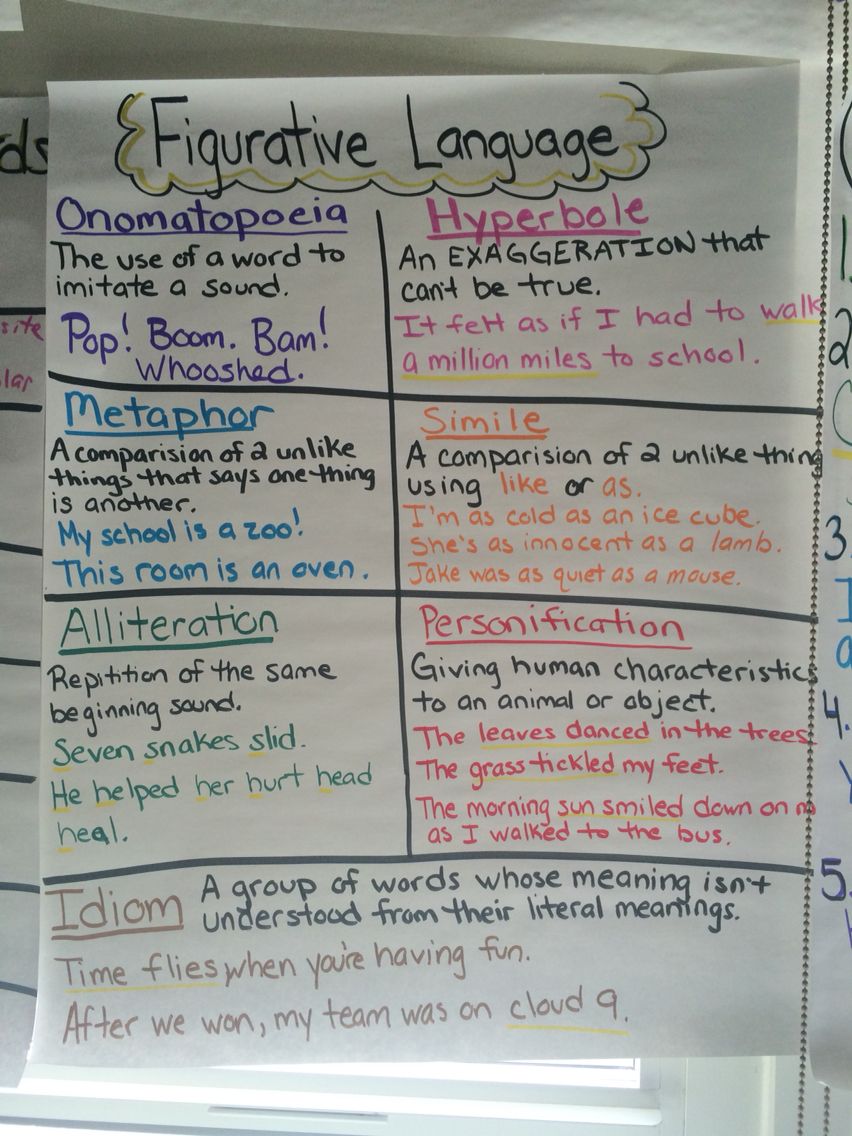 Figurative Language
Onomatopoeia
The use of a word to
imitate a sound.
Pop! Boom. Bam!
Whooshed.
Hyperbole
An EXAGGERATION that
can't be true.
It felt as if I had to walk
a million miles to school.
Metaphor
A comparision of 2 unlike
things that says one thing
is another.
My school is a zoo!
This room is an oven.
Simile
A comparision of 2 unlike thing
using like or as.
I'm as cold as an ice cube.
She's as innocent as a lamb.
Jake was as quiet as a mouse.
Alliteration
Repitition of the same
beginning sound.
Seven snakes slid.
He helped her hurt head
heal.
Personification
Giving human characteristics
to an animal or object.
The leaves danced in the trees.
The grass tickled my feet.
The morning sun smiled down on
as I walked to the bus.
Idiom
A group of words whose meaning isn't
understood from their literal meanings.
Time flies when you're having fun.
After we won, my team was on cloud 9.
ds
site
lar
1.
2
3.
I
a
4.
5.